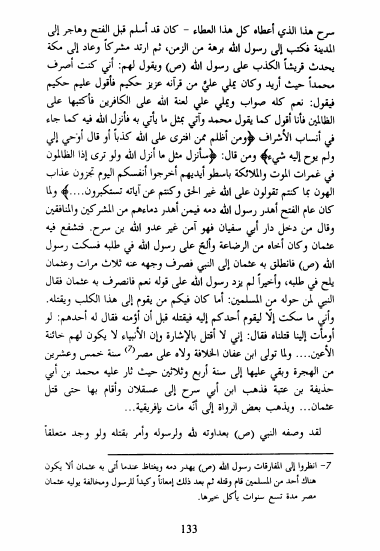 سرح هذا الذي أعطاه كل هذا العطاء - كان قد أسلم قبل الفتح وهاجر إلى
المدينة فكتب إلى رسول الله برهة من الزمن، ثم ارتد مشركاً وعاد إلى مكة
يحدث قريشاً الكذب على رسول الله (ص) ويقول لهم: أني كنت أصرف
محمداً حيث أريد وكان يملي عليّ من قرآنه عزيز حكيم فأقول عليم حكيم
فيقول: نعم كله صواب ويملي علي لعنة الله على الكافرين فأكتبها على
الظالمين فأنا أقول كما يقول محمد وآتي بمثل ما يأتي به فأنزل الله فيه كما جاء
في أنساب الأشراف ﴿ومن أظلم ممن افترى على الله كذباً أو قال أوحي إلي
ولم يوح إليه شيء﴾ ومن قال: ﴿سأنزل مثل ما أنزل الله ولو ترى إذا الظالمون
في غمرات الموت والملائكة باسطو أيديهم أخرجوا أنفسكم اليوم تجزون عذاب
الهون بما كنتم تقولون على الله غير الحق وكنتم عن آياته تستكبرون....﴾ ولما
كان عام الفتح أهدر رسول الله دمه فيمن أهدر دماءهم من المشركين والمنافقين
وقال من دخل دار أبي سفيان فهو آمن غير عدو الله بن سرح. فتشفع فيه
عثمان وكان أخاه من الرضاعة وألحّ على رسول الله في طلبه فسكت رسول
الله (ص) فانطلق به عثمان إلى النبي فصرف وجهه عنه ثلاث مرات وعثمان
يلح في طلبه، وأخيراً لم يزد رسول الله على قوله نعم فانصرف به عثمان فقال
النبي لمن حوله من المسلمين: أما كان فيكم من يقوم إلى هذا الكلب ويقتله.
وأني ما سكت إلّا ليقوم أحدكم إليه فيقتله قبل أن أؤمنه فقال له أحدهم: لو
أومأت إلينا قتلناه فقال: إني لا أقتل بالإشارة وإن الأنبياء لا يكون لهم خائنة
الأعين.... ولما تولى ابن عفان الخلافة ولاه على مصر(7) سنة خمس وعشرين
من الهجرة وبقي عليها إلى سنة أربع وثلاثين حيث ثار عليه محمد بن أبي
حذيفة بن عتبة فذهب ابن أبي سرح إلى عسقلان وأقام بها حتى قتل
عثمان... ويذهب بعض الرواة إلى أنّه مات بإفريقية...
لقد وصفه النبي (ص) بعداوته لله ولرسوله وأمر بقتله ولو وجد متعلقاً
7- انظروا إلى المفارقات رسول الله (ص) يهدر دمه ويغتاظ عندما أتى به عثمان ألا يكون
هناك أحد من المسلمين قام وقتله ثم بعد ذلك إمعاناً وكيداً للرسول ومخالفة يوليه عثمان
مصر مدة تسع سنوات يأكل خيرها.
133